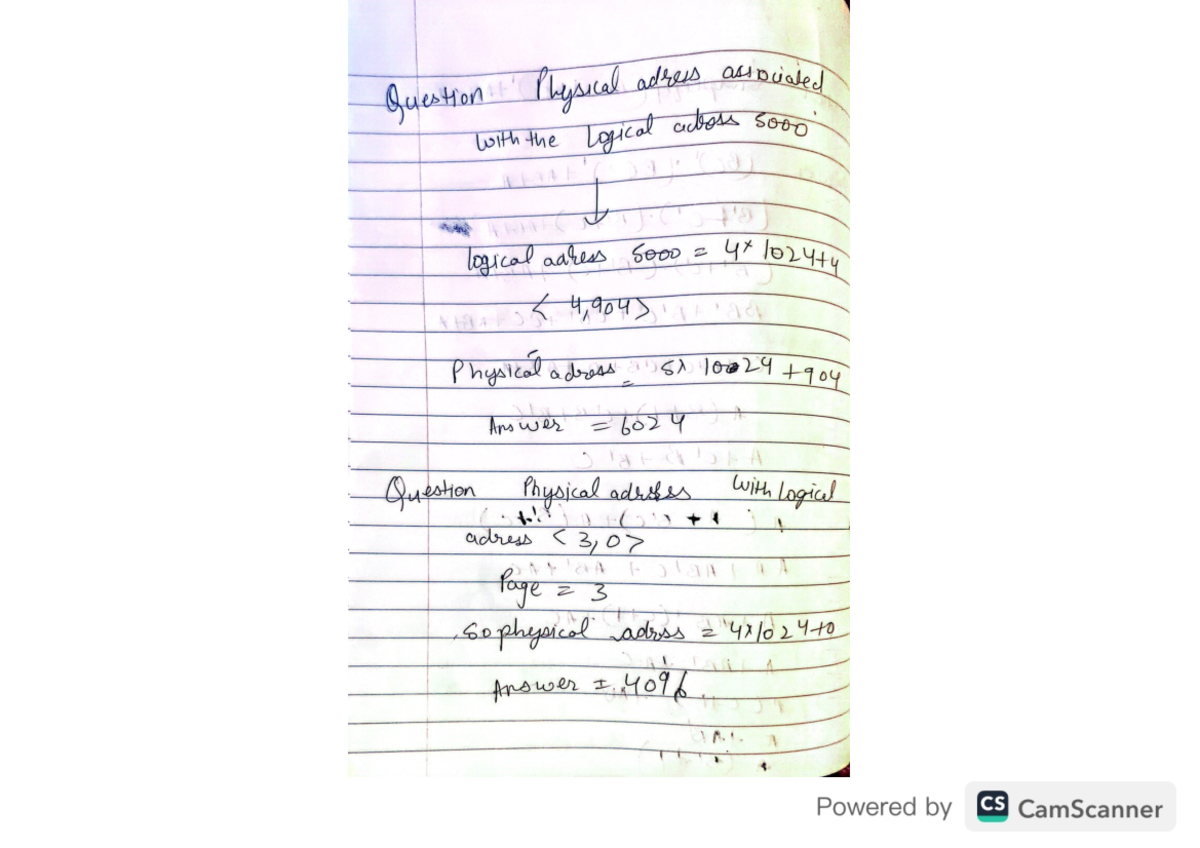 Question Physical adress associated
with the Logical adress 5000
logical adress 5000 = 4* 1024+4
< 4,904>
Physical adress = 5x 10024 +904
Answer = 6024
Question Physical adress With Logical
adress < 3,0>
Page = 3
so physical adrss = 4x1024+0
Answer = 4096
Powered by CS CamScanner